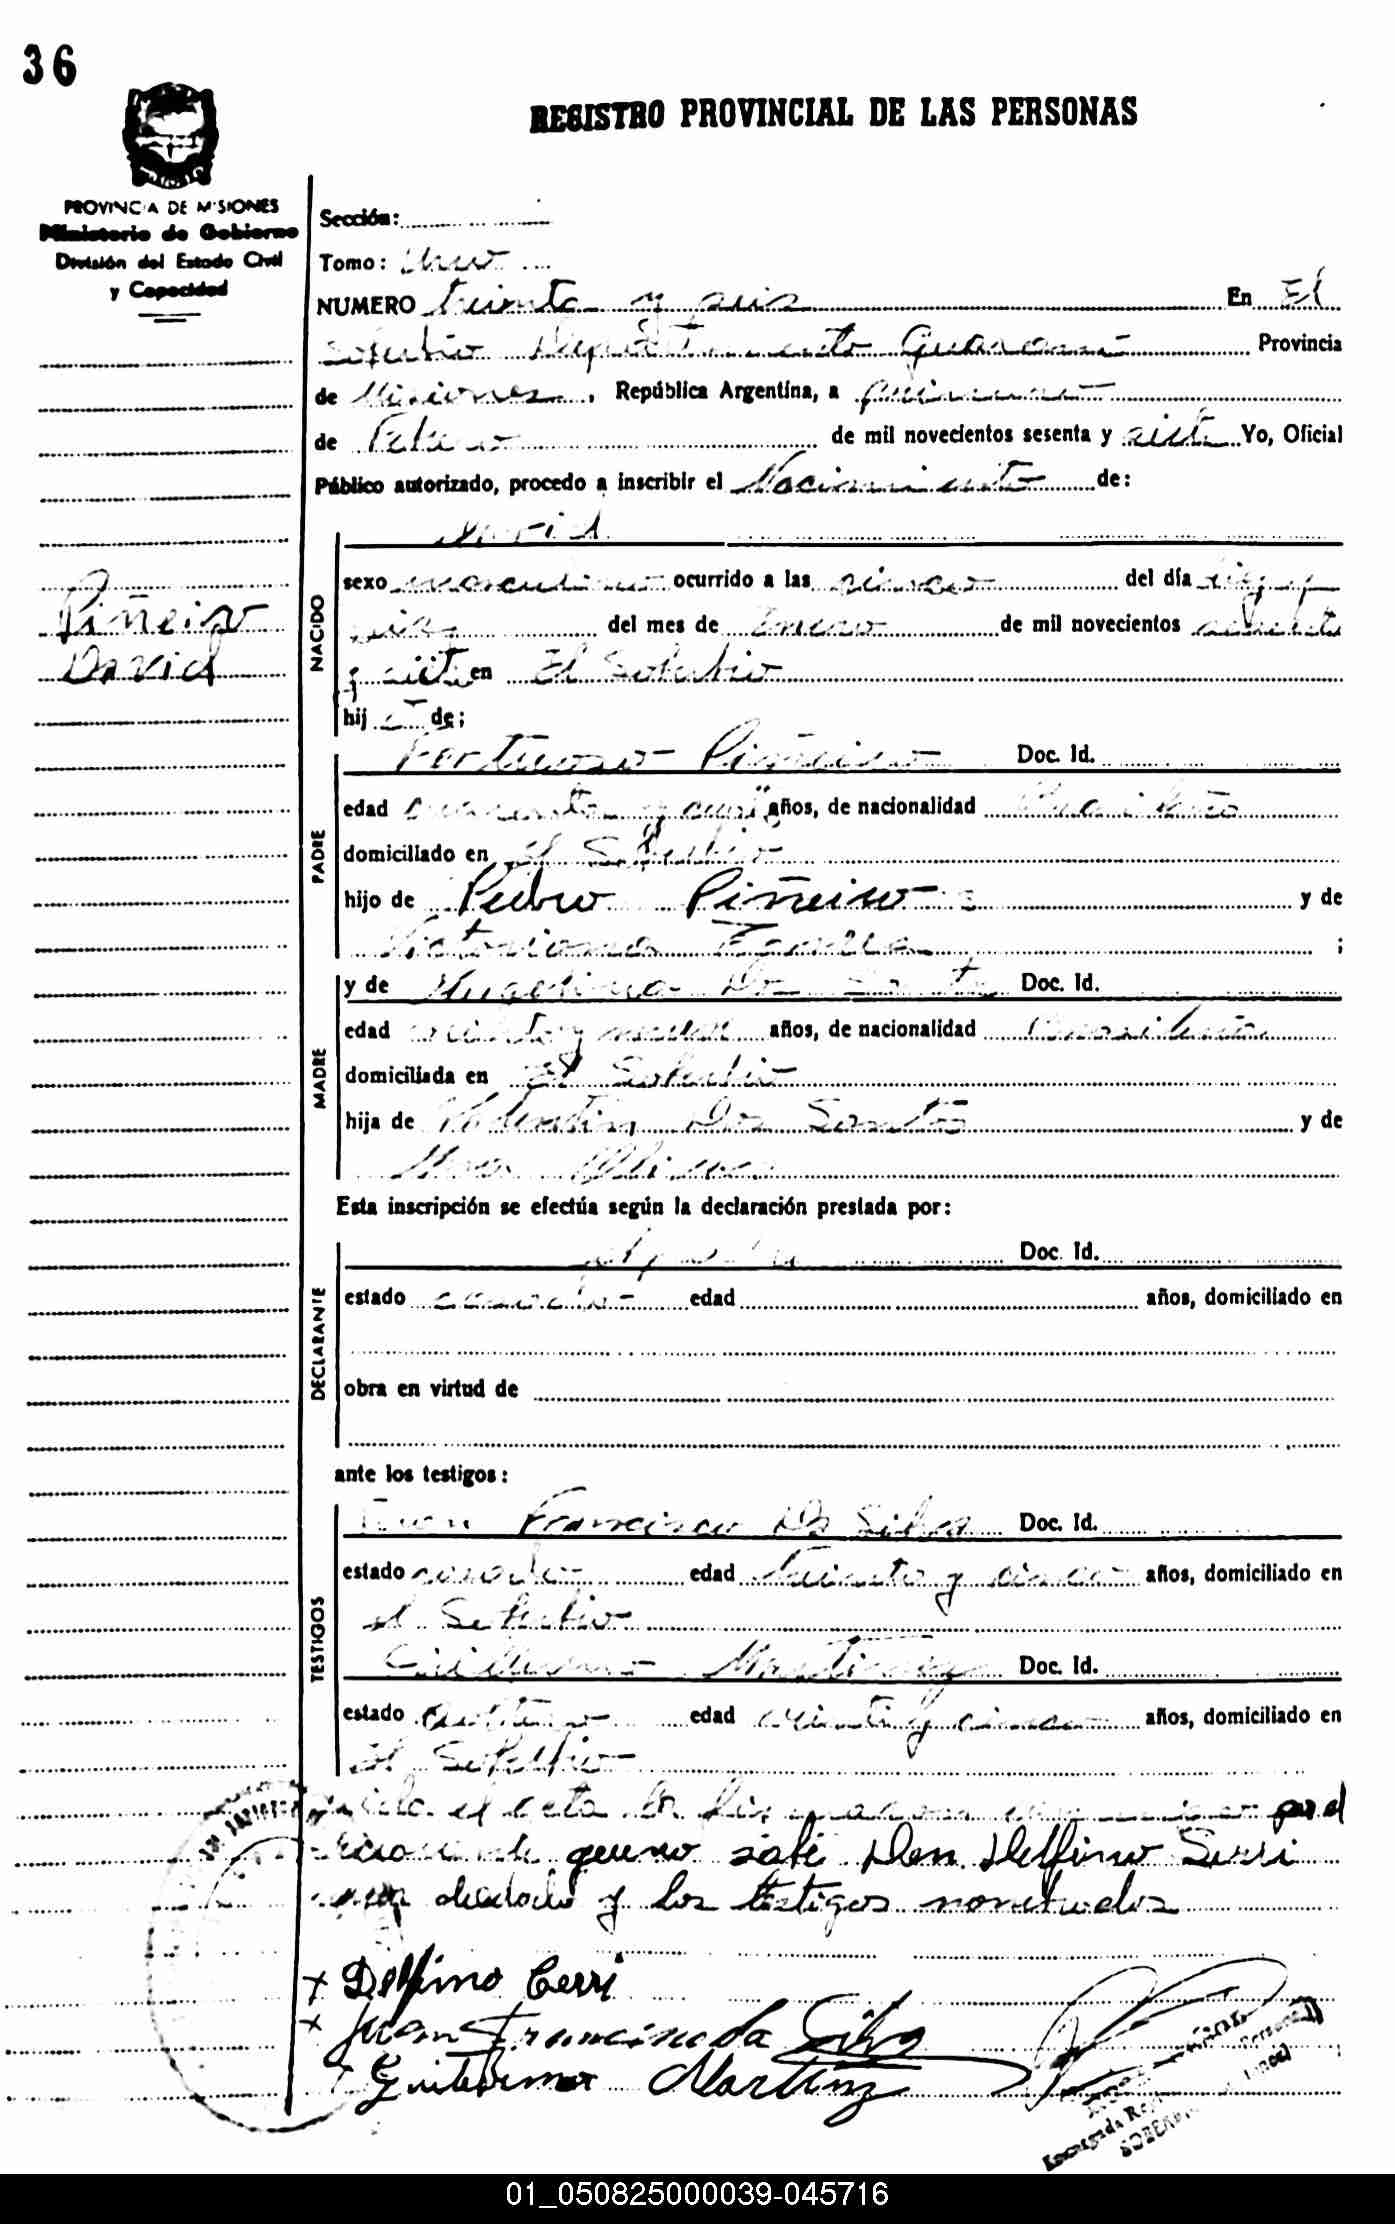 36
REGISTRO PROVINCIAL DE LAS PERSONAS
PROVINCIA DE MISIONES
Ministerio de Gobierno
División del Estado Civil
y Capacidad
Sección:
Tomo: Uno
NUMERO treinta y seis En El
Soberbio Departamento Guaraní Provincia
de Misiones, República Argentina, a quince
de Febrero de mil novecientos sesenta y siete Yo, Oficial
Público autorizado, procedo a inscribir el Nacimiento de:
David
NACIDO
sexo masculino ocurrido a las cinco del día diez y
seis del mes de Enero de mil novecientos sesenta
y siete en El Soberbio
hij o de;
Piñeiro
David
PADRE
Fortunoso Piñeiro Doc. Id.
edad cuarenta y años, de nacionalidad Brasileño
domiciliado en El Soberbio
hijo de Pedro Piñeiro y de
Victoriana ;
MADRE
y de Angelina Dos Santos Doc. Id.
edad treinta y nueve años, de nacionalidad Brasileña
domiciliada en El Soberbio
hija de Valentin Dos Santos y de
Esta inscripción se efectúa según la declaración prestada por:
DECLARANTE
el padre Doc. Id.
estado casado edad años, domiciliado en
obra en virtud de
ante los testigos:
TESTIGOS
Juan Francisco Da Silva Doc. Id.
estado casado edad treinta y cinco años, domiciliado en
el Soberbio
Guillermo Martinez Doc. Id.
estado soltero edad veinte y cinco años, domiciliado en
El Soberbio
el acta por el
sabe Don Delfino Serri
y los testigos nombrados
x Delfino Cerri
x Juan Francisco da Silva
x Guillermo Martinz
Encargada
01_050825000039-045716